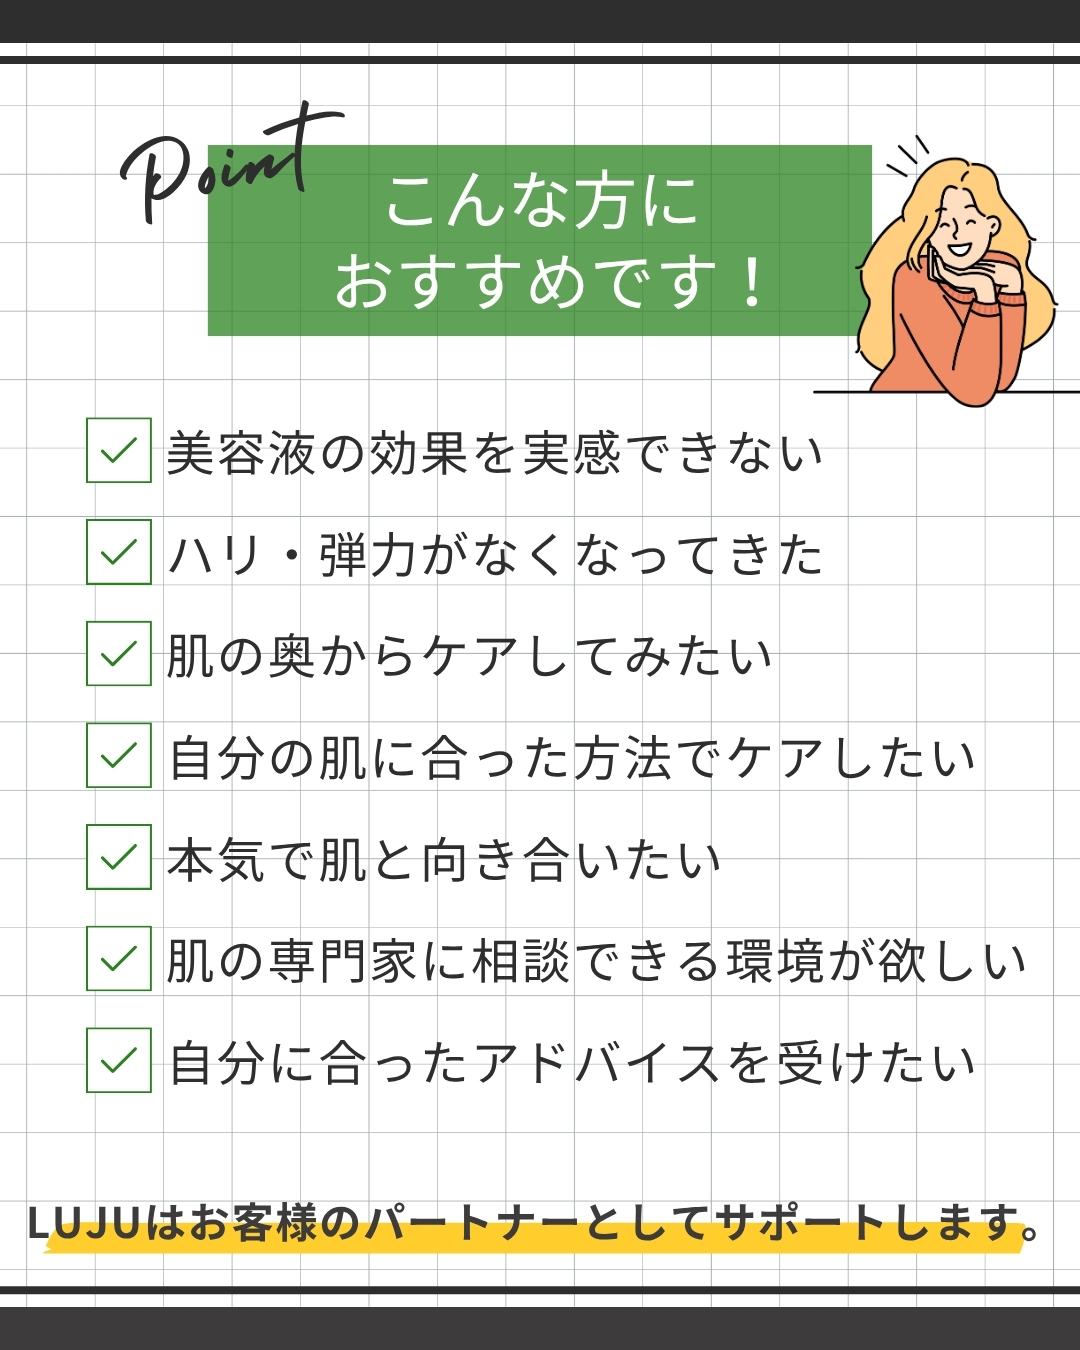 Point
こんな方に
おすすめです！
美容液の効果を実感できない
ハリ・弾力がなくなってきた
肌の奥からケアしてみたい
自分の肌に合った方法でケアしたい
本気で肌と向き合いたい
肌の専門家に相談できる環境が欲しい
自分に合ったアドバイスを受けたい
LUJUはお客様のパートナーとしてサポートします。